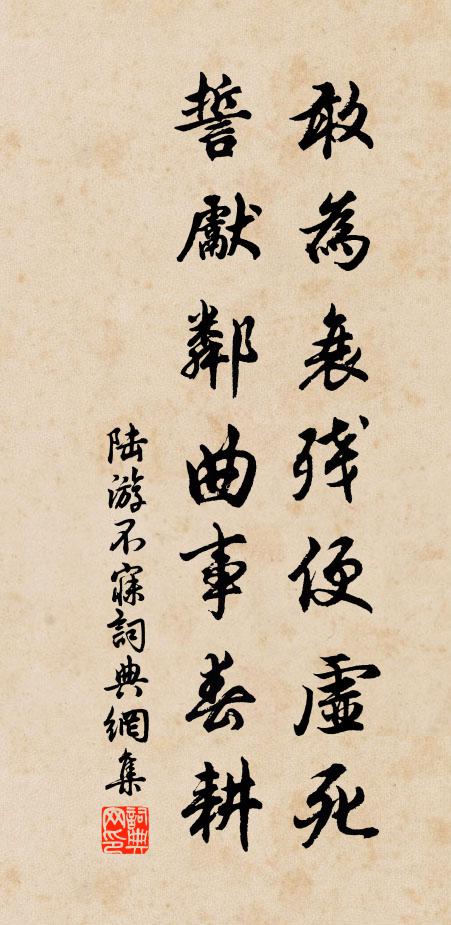 敢為衰殘便虛死
誓獻鄰曲事春耕
陆游不寐詞典網集
詞典网印